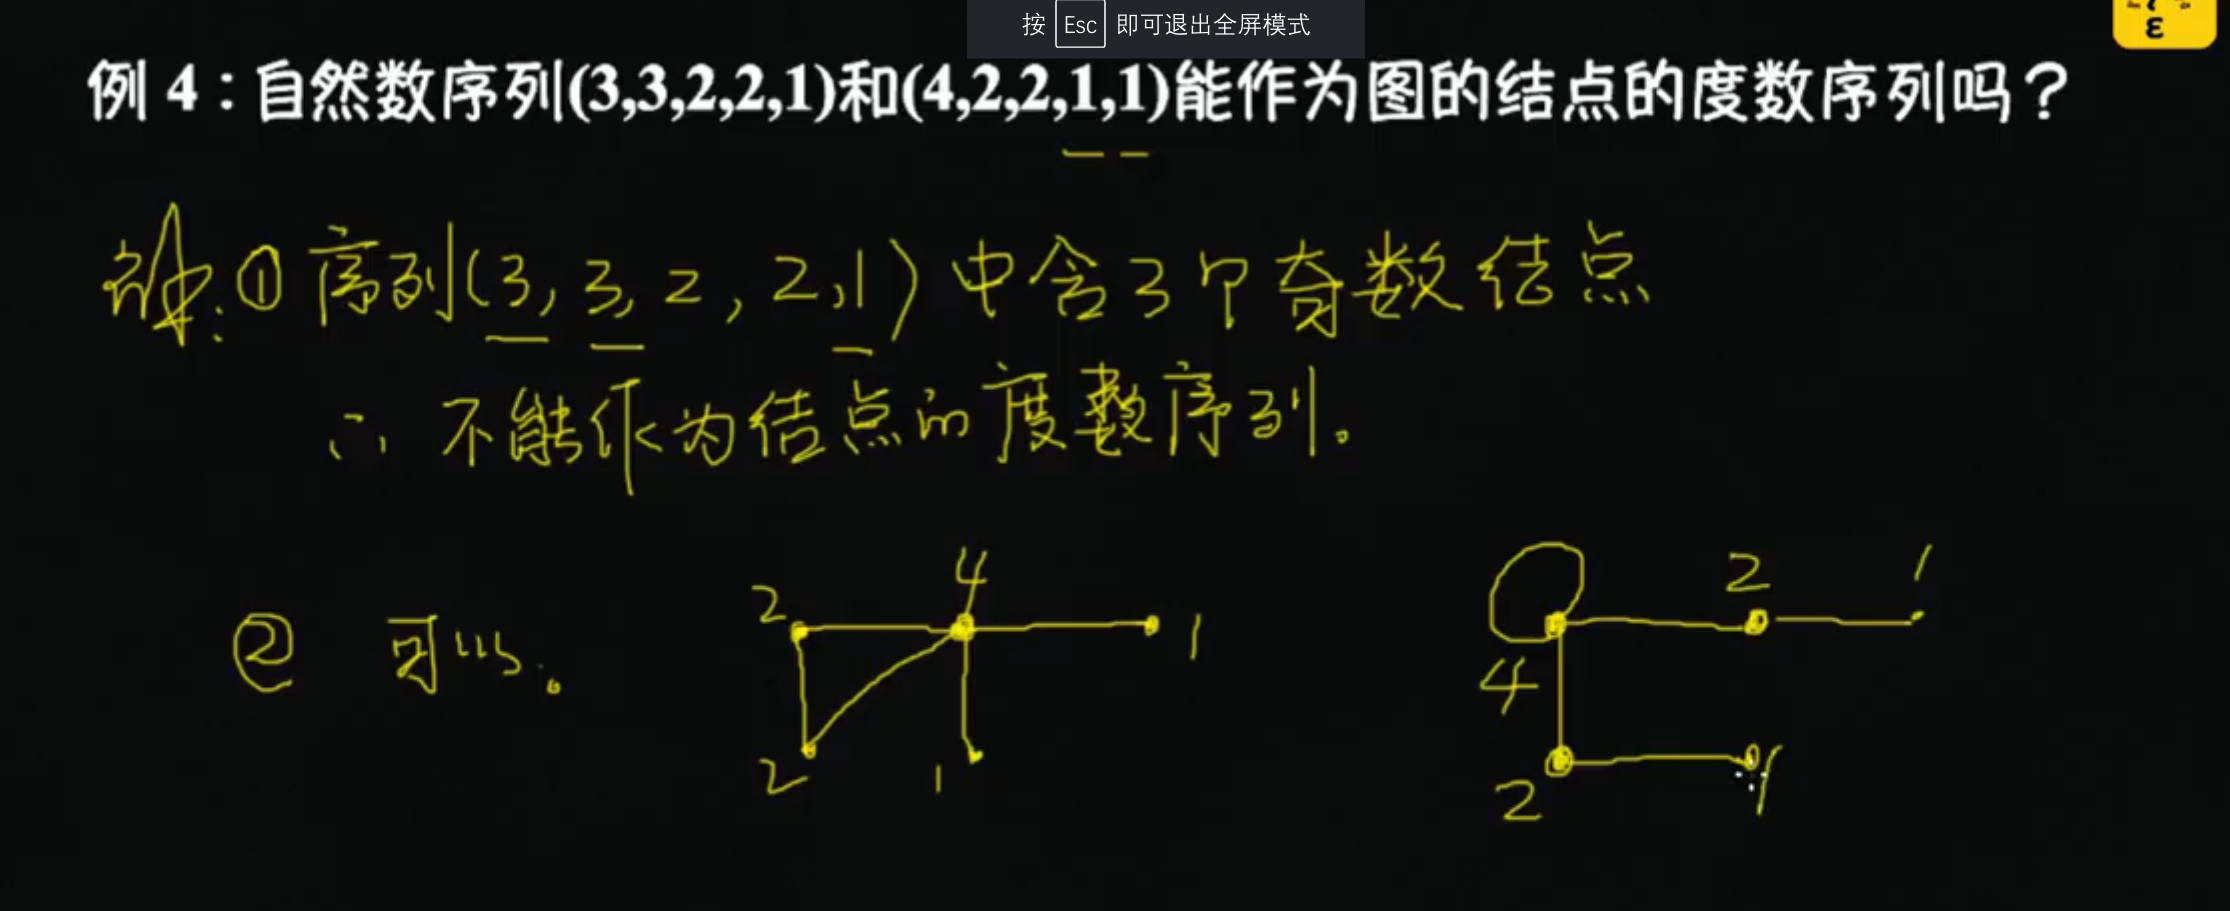 按 Esc 即可退出全屏模式
例 4：自然数序列(3,3,2,2,1)和(4,2,2,1,1)能作为图的结点的度数序列吗？
解：① 序列(3, 3, 2, 2, 1) 中含3个奇数结点
∴ 不能作为结点的度数序列。
② 可以。
2 4 1
2 1
2 1
4
2 1